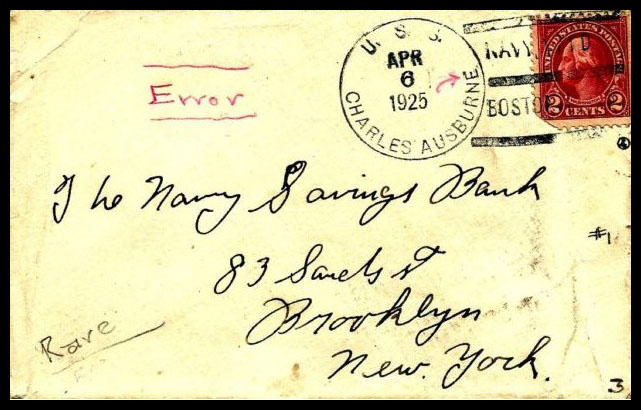 U. S. S.
APR
6
1925
CHARLES AUSBURNE
NAVY YARD
BOSTON
UNITED STATES POSTAGE
2 CENTS 2
Error
The Navy Savings Bank
#1
83 Sands st
Brooklyn
New York.
Rare
3